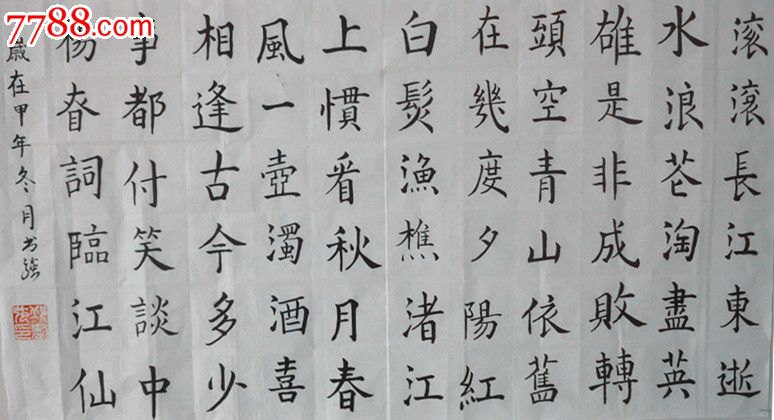 7788.com
滚滚長江東逝
水浪花淘盡英
雄是非成敗轉
頭空青山依舊
在幾度夕陽紅
白髮漁樵渚江
上慣看秋月春
風一壺濁酒喜
相逢古今多少
事都付笑談中
楊昚詞臨江仙
歲在甲年冬月